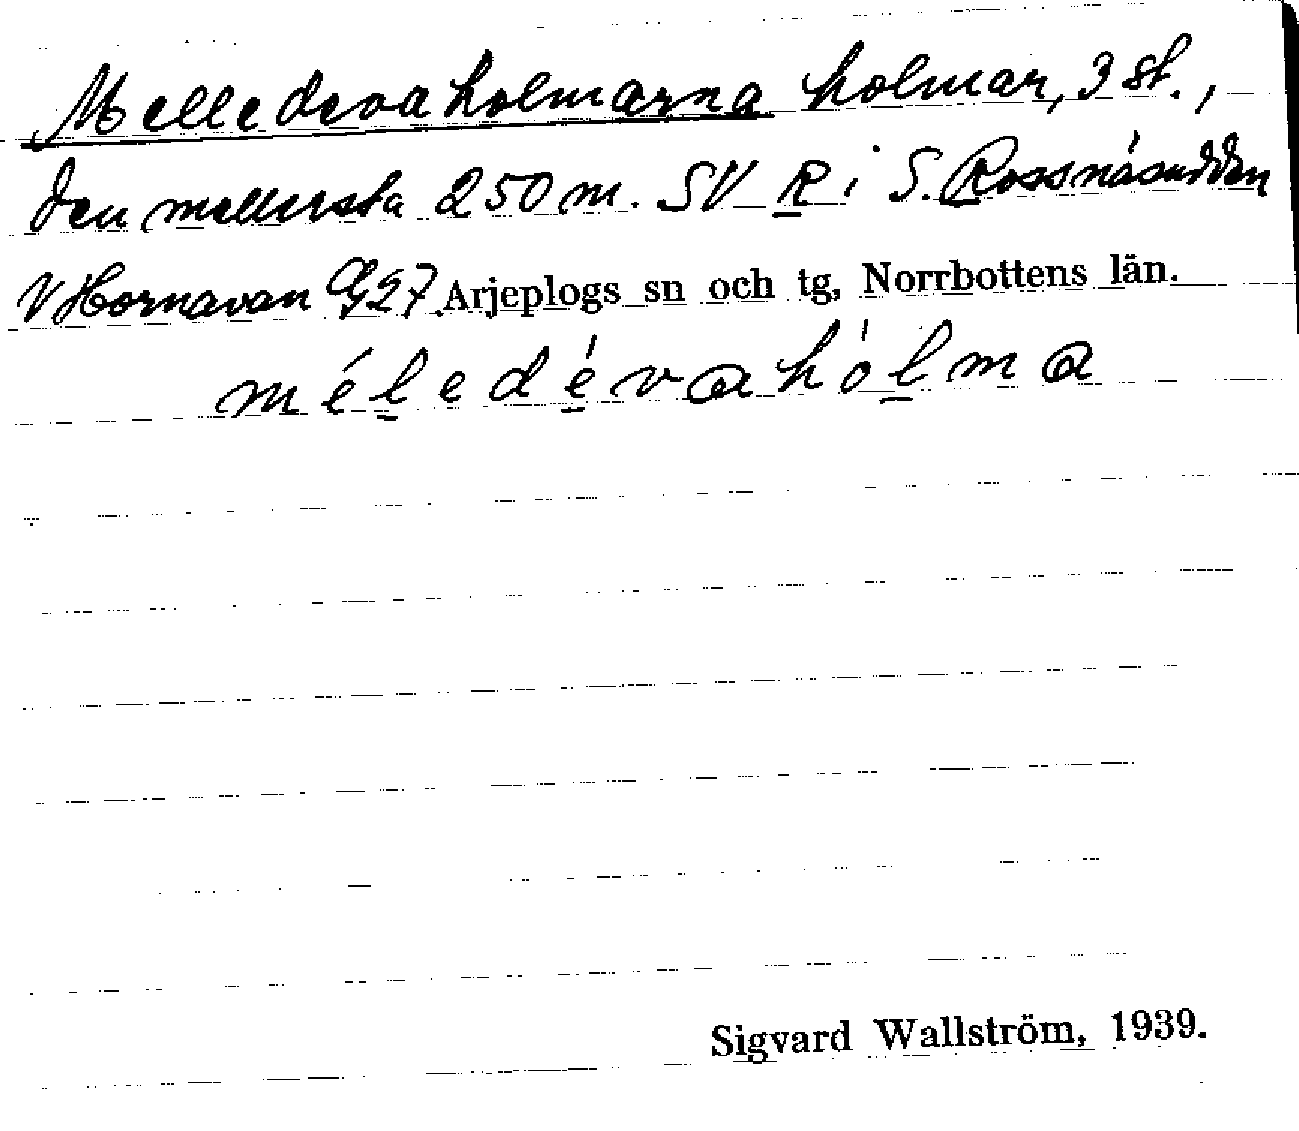 Melledevaholmarna holmar, 3 st.,
den mellersta 250 m. SV R i S. Rossnäsudden
V Hornavan G27 Arjeplogs sn och tg, Norrbottens län.
méledévahólma
Sigvard Wallström, 1939.